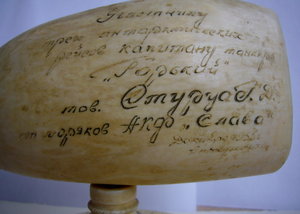 Участнику
трёх антарктических
рейсов капитану танкера
„Горький"
тов. Стуруа Г. Д.
от моряков АКФ „Слава"